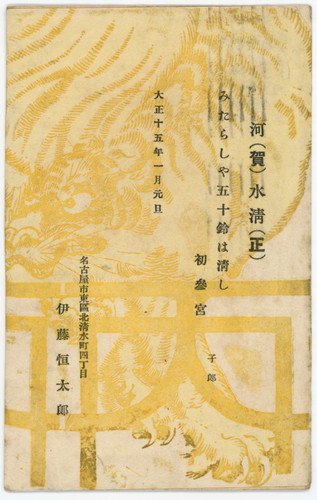 河(賀)水淸(正)
みたらしや五十鈴は淸し
初參宮
于郎
大正十五年一月元旦
名古屋市東區北淸水町四丁目
伊藤恒太郎